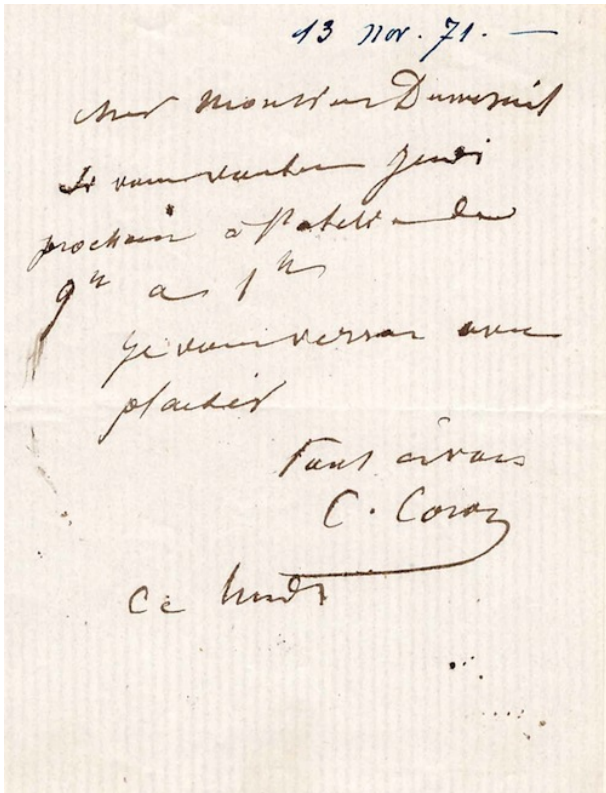 13 nov. 71. —
Cher Monsieur Dumesnil
Si vous voulez jeudi
prochain à l'atelier de
9h à 1h
je vous verrai avec
plaisir
Tout à vous
C. Corot
Ce lundi